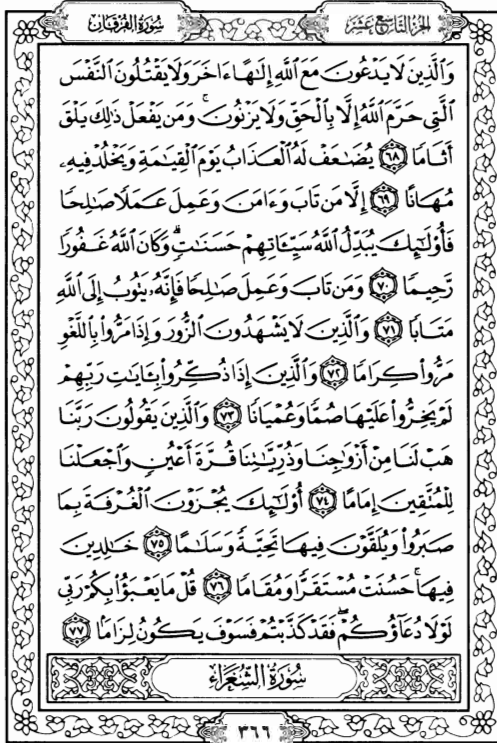 سُورَةُ الفُرْقَان
الجُزْءُ التَّاسِعَ عَشَرَ
وَٱلَّذِينَ لَا يَدْعُونَ مَعَ ٱللَّهِ إِلَٰهًا ءَاخَرَ وَلَا يَقْتُلُونَ ٱلنَّفْسَ
ٱلَّتِى حَرَّمَ ٱللَّهُ إِلَّا بِٱلْحَقِّ وَلَا يَزْنُونَ ۚ وَمَن يَفْعَلْ ذَٰلِكَ يَلْقَ
أَثَامًا ٦٨ يُضَٰعَفْ لَهُ ٱلْعَذَابُ يَوْمَ ٱلْقِيَٰمَةِ وَيَخْلُدْ فِيهِۦ
مُهَانًا ٦٩ إِلَّا مَن تَابَ وَءَامَنَ وَعَمِلَ عَمَلًا صَٰلِحًا
فَأُو۟لَٰٓئِكَ يُبَدِّلُ ٱللَّهُ سَيِّـَٔاتِهِمْ حَسَنَٰتٍ ۗ وَكَانَ ٱللَّهُ غَفُورًا
رَّحِيمًا ٧٠ وَمَن تَابَ وَعَمِلَ صَٰلِحًا فَإِنَّهُۥ يَتُوبُ إِلَى ٱللَّهِ
مَتَابًا ٧١ وَٱلَّذِينَ لَا يَشْهَدُونَ ٱلزُّورَ وَإِذَا مَرُّوا۟ بِٱللَّغْوِ
مَرُّوا۟ كِرَامًا ٧٢ وَٱلَّذِينَ إِذَا ذُكِّرُوا۟ بِـَٔايَٰتِ رَبِّهِمْ
لَمْ يَخِرُّوا۟ عَلَيْهَا صُمًّا وَعُمْيَانًا ٧٣ وَٱلَّذِينَ يَقُولُونَ رَبَّنَا
هَبْ لَنَا مِنْ أَزْوَٰجِنَا وَذُرِّيَّٰتِنَا قُرَّةَ أَعْيُنٍ وَٱجْعَلْنَا
لِلْمُتَّقِينَ إِمَامًا ٧٤ أُو۟لَٰٓئِكَ يُجْزَوْنَ ٱلْغُرْفَةَ بِمَا
صَبَرُوا۟ وَيُلَقَّوْنَ فِيهَا تَحِيَّةً وَسَلَٰمًا ٧٥ خَٰلِدِينَ
فِيهَا ۚ حَسُنَتْ مُسْتَقَرًّا وَمُقَامًا ٧٦ قُلْ مَا يَعْبَؤُا۟ بِكُمْ رَبِّى
لَوْلَا دُعَآؤُكُمْ ۖ فَقَدْ كَذَّبْتُمْ فَسَوْفَ يَكُونُ لِزَامًۢا ٧٧
سُورَةُ الشُّعَرَاء
٣٦٦